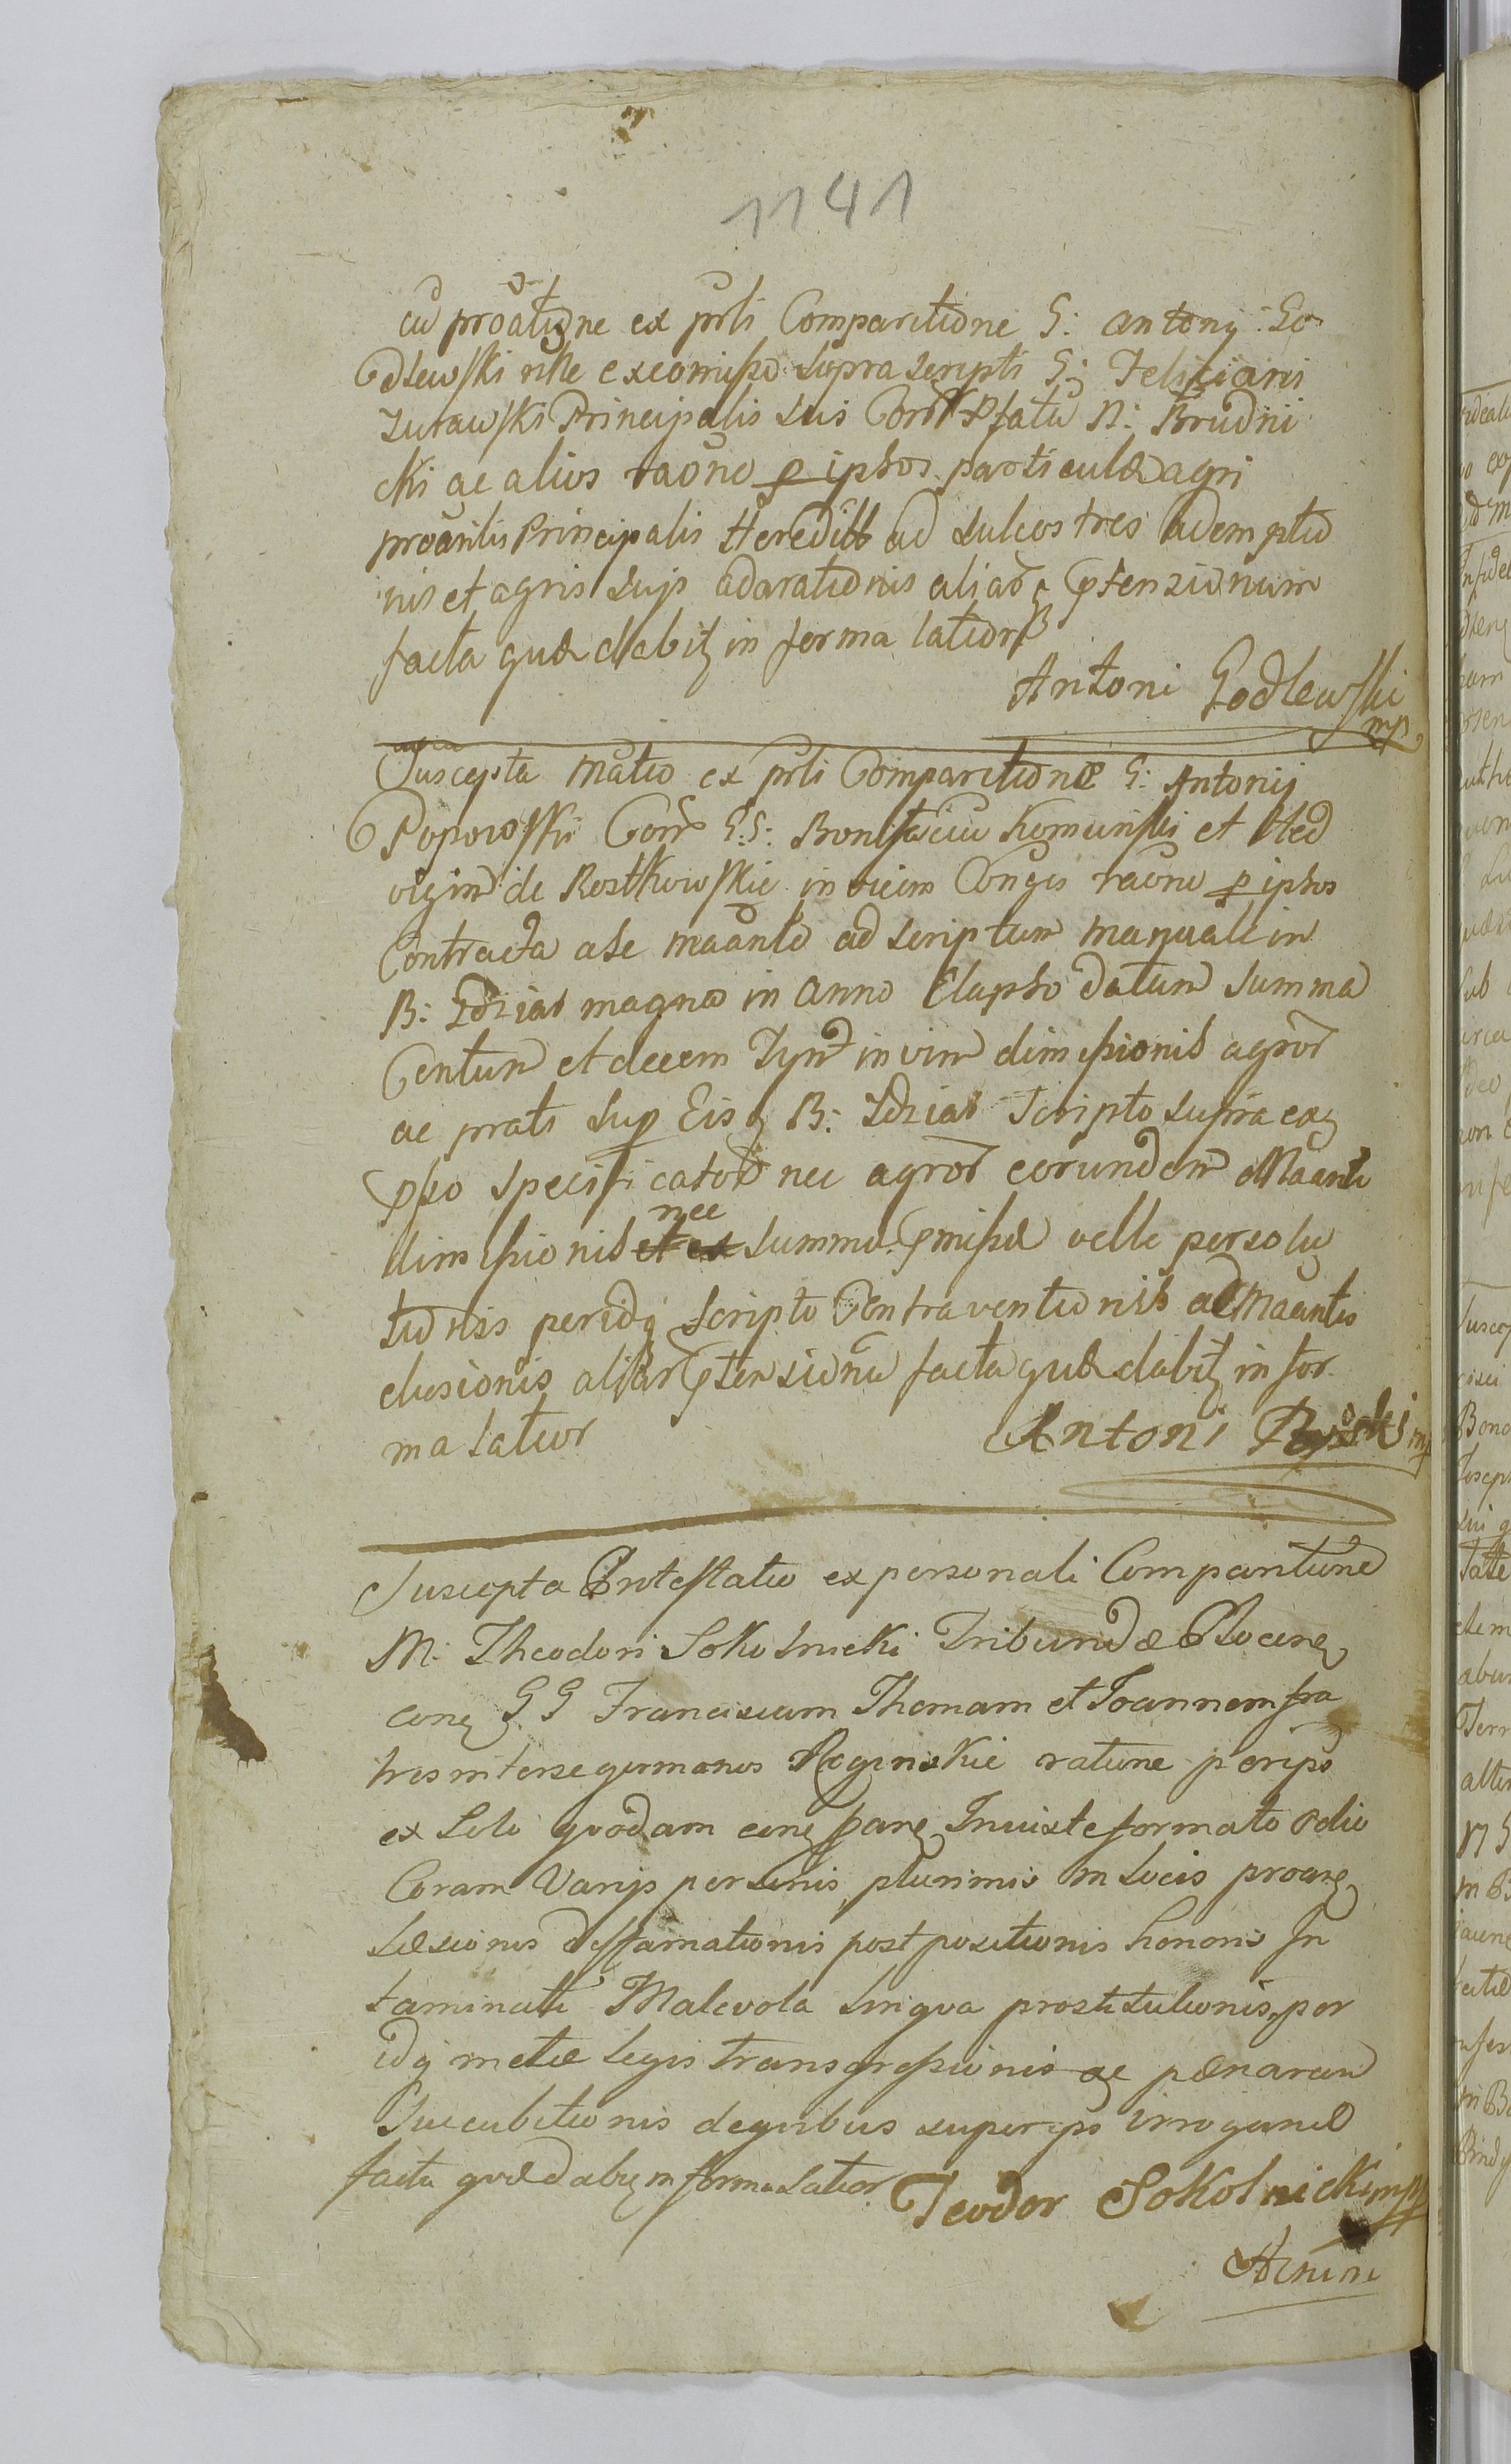 1141
cu proatione ex prli Comparitione G: Antonij Go
dlewski nне ex comisso supra scripti G: Feliciani
Zurawski Principalis sui Con pfatu N: Brudni
cki ac alios raone p ipsos particulæ agri
proantis Principalis Hereditt ad sulcos tres ademptio
nis et agris suis adorationis aliar ptensionum
facta quæ dabit in forma latiori
Antoni Godlewski
mp
Suscepta Matio ex prli Comparitione G: Antonij
Popowski Con G:G: Bonifaciu Komunski et Hed
vigim de Rostkowskie invicem Conges raone p ipsos
Contracta a se maante ad scriptum manuale in
B: Zdziar magna in Anno Elapso datum summa
Centum et decem Tynf in vim dimissionis agror
ac prati sup Eisq B: Zdziar scripto supra ex
psso specificator nec agror eorundem Maanti
dimissionis nec summæ pmissæ velle persolu
tionis per idq scripto Contraventionis ac Maantis
elusionis aliar ptensionu facta quæ dabit in for
ma latior
Antoni mp
Suscepta Protestatio ex personali Comparitione
M: Theodori Sokolnicki Tribunidæ Plocen
con G G Franciscum Thomam et Joannem fra
tres inter se germanos Roginskie ratione per ips
ex solo quodam con pan Iniuste formato odio
Coram Varijs personis plurimis in Locis proan
Læsionis diffamationis post positionis honoris In
taminati Malevola Lingva prostitutionis per
idq metæ Legis transgressionis ac pænarum
Succubitionis de quibus super ips irrogand
facta quæ dabit in forma Latior
Teodor Sokolnicki mp